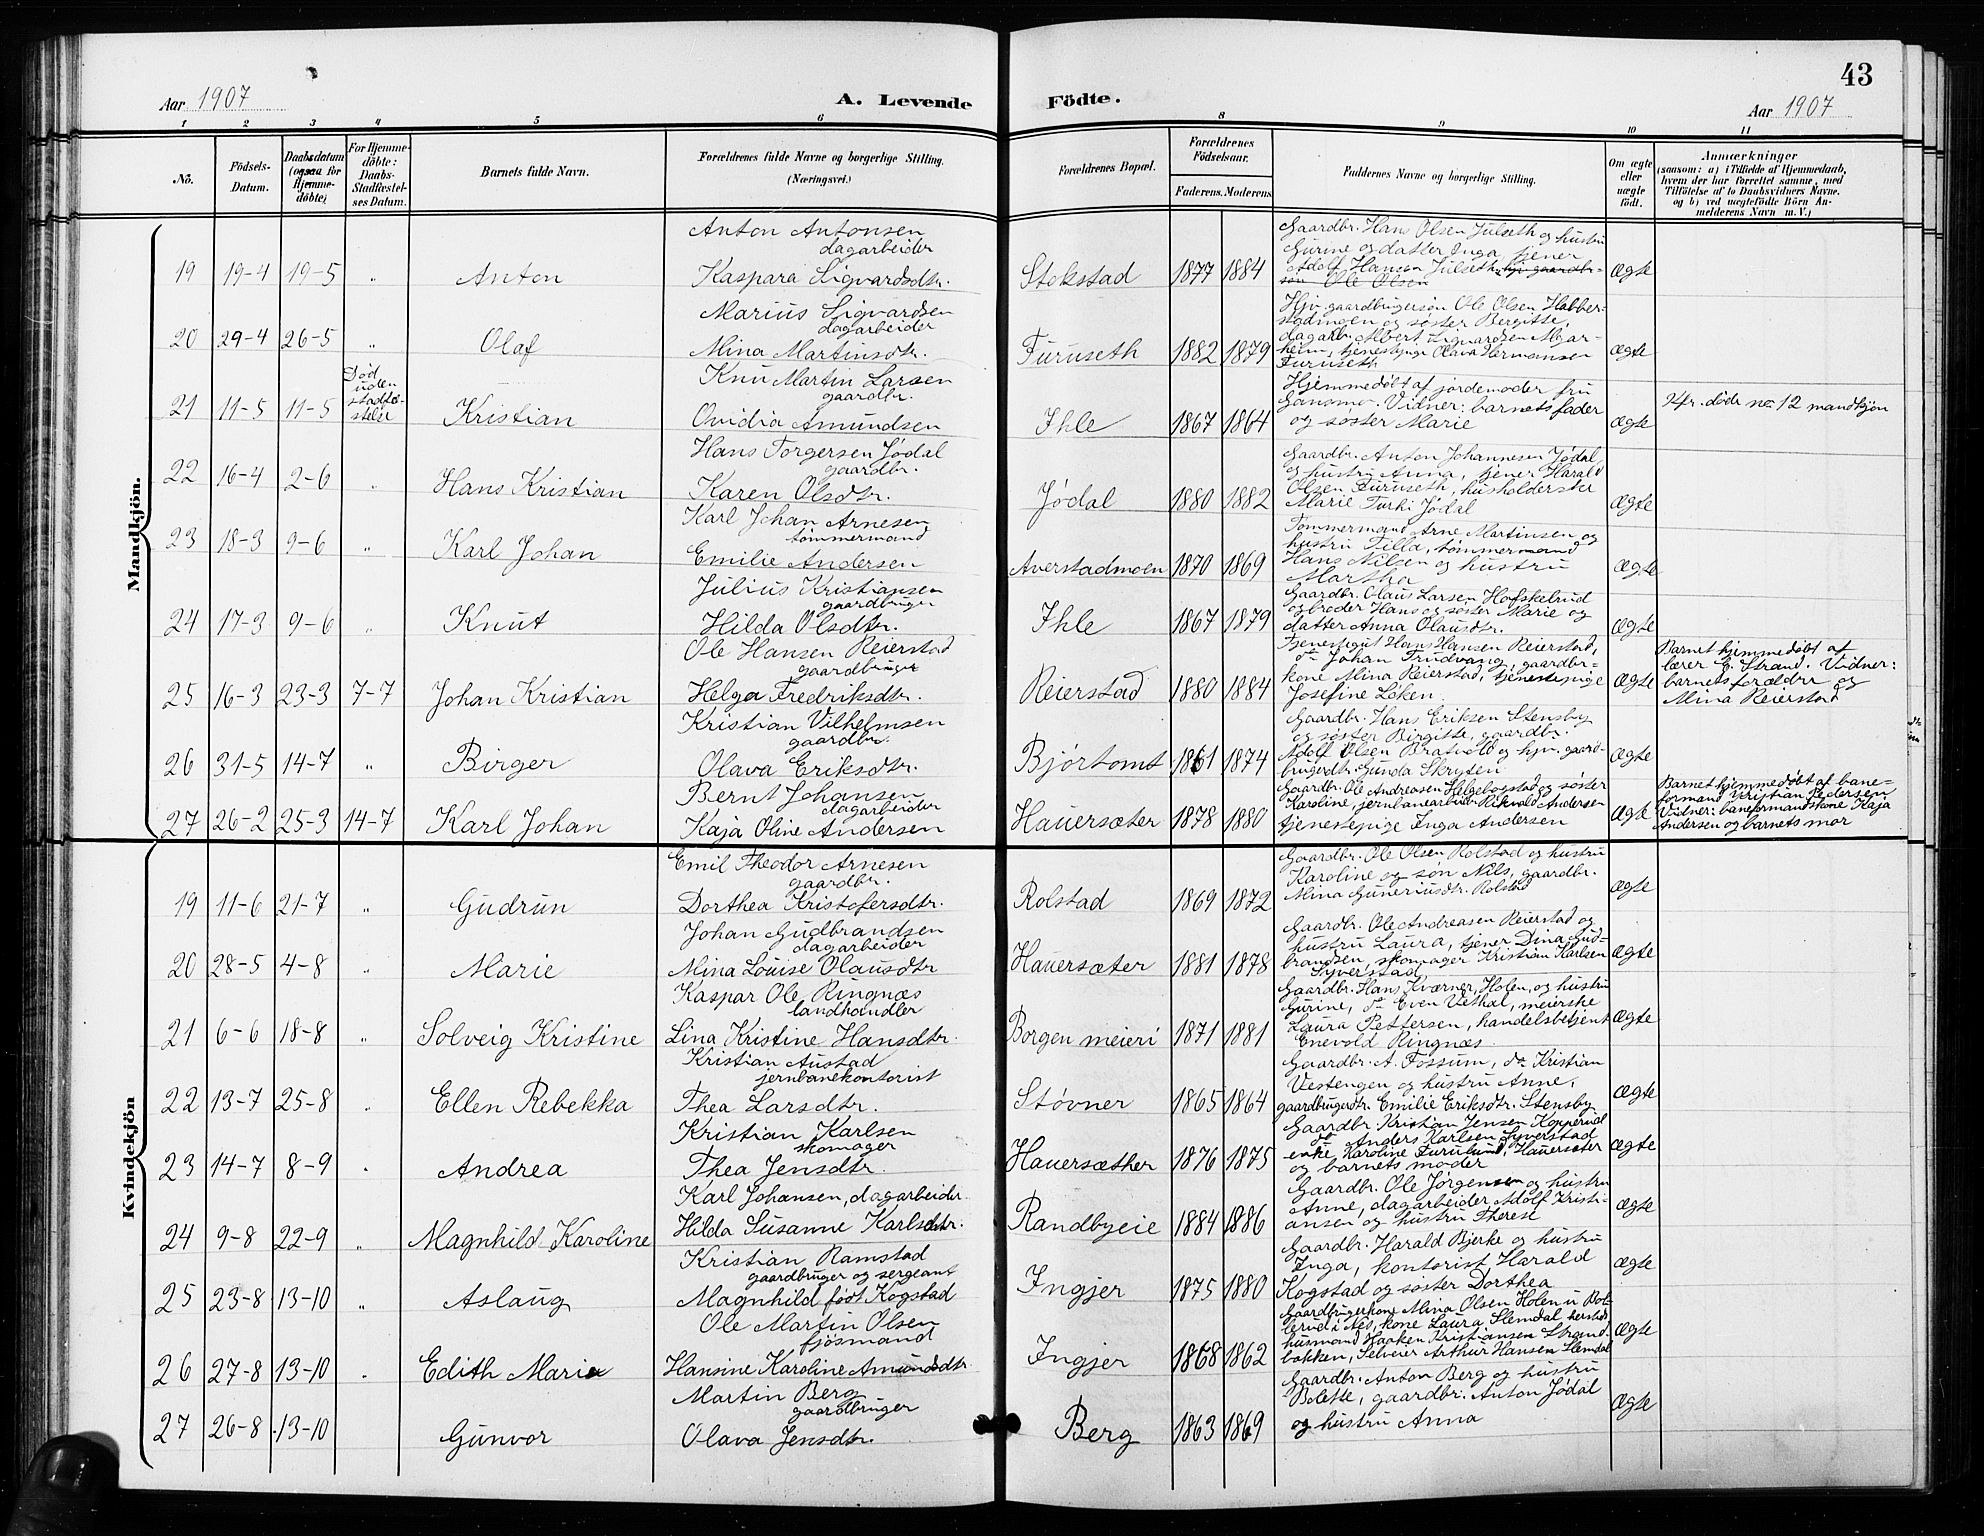 43
Aar 1907 A. Levende Födte. Aar 1907
1 2 3 4 5 6 8 9 10 11
No. Födsels-Datum. Daabsdatum (ogsaa for Hjemme-döbte) For Hjemme-döbte: Daabs-Stadfæstel-ses Datum. Barnets fulde Navn. Forældrenes fulde Navne og borgerlige Stilling. (Næringsvei.) Forældrenes Bopæl. Forældrenes Födselsaar. Faderens. Moderens. Faddernes Navne og borgerlige Stilling. Om ægte eller uægte födt. Anmærkninger (saasom: a) i Tilfælde af Hjemmedaab, hvem der har forrettet samme, med Tilföielse af to Daabsvidners Navne. og b) ved uægtefödte Börn An-melderens Navn m. V.)
Mandkjön.
19 19-4 19-5 " Anton
Anton Antonsen
dagarbeider
Kaspara Sigvardsdtr.
Stokstad 1877 1884
Gaardbr. Hans Olsen Julseth og hustru
Gurine og datter Inga tjener
Adolf Hansen Julseth, hjv. gaardbr-
søn Ole Olsen
ægte
20 29-4 26-5 " Olaf
Marius Sigvardsen
dagarbeider
Mina Martinsdtr.
Furuseth 1882 1879
Hjv. gaardbrugersøn Ole Olsen Habber-
stadengen og søster Bergitte,
dagarbr. Albert Sigvardsen Mar-
heim, tjenestpige Olava Hermansen
Furuseth
ægte
21 11-5 11-5
Død
uden
stadfæ-
stelse
Kristian
Knu Martin Larsen
gaardbr.
Ovidia Amundsen
Ihle 1867 1864
Hjemmedøbt af jordemoder fru
Gansmo. Vidner: barnets fader
og søster Marie
ægte
Kfr. døde no 12 mandkjøn
22 16-4 2-6 " Hans Kristian
Hans Torgersen Jødal
gaardbr.
Karen Olsdtr.
Jødal 1880 1882
Gaardbr. Anton Johannesen Jødal
og hustru Anna, tjener Harald
Olsen Furuseth, husholderske
Marie Turki Jødal
ægte
23 18-3 9-6 " Karl Johan
Karl Johan Arnesen
tømmermand
Emilie Andersen
Averstadmoen 1870 1869
Tømmermand Arne Martinsen og
hustru Tilla, tømmermand
Hans Nilsen og hustru
Martha
ægte
24 17-3 9-6 " Knut
Julius Kristiansen
gaardbruger
Hilda Olsdtr.
Ihle 1867 1879
Gaardbr. Olaus Larsen Hofskelrud
og broder Hans og søster Marie og
datter Anna Olausdtr.
ægte
25 16-3 23-3 7-7 Johan Kristian
Ole Hansen Reierstad
gaardbruger
Helga Fredriksdtr.
Reierstad 1880 1884
Tjenestegut Hans Hansen Reierstad,
do Johan Trudvang, gaardbr-
kone Mina Reierstad, tjenestepige
Josefine Løken
ægte
Barnet hjemmedøbt af
lærer E. Strand. Vidner:
barnets forældre og
Mina Reierstad
26 31-5 14-7 " Birger
Kristian Vilhelmsen
gaardbr.
Olava Eriksdtr.
Bjørtomt 1861 1874
Gaardbr. Hans Eriksen Stensby
og søster Birgitte, gaardbr.
Adolf Olsen Bratvold og hjv. gaard-
brugerdtr. Gunda Skryten
ægte
27 26-2 25-3 14-7 Karl Johan
Bernt Johansen
dagarbeider
Kaja Oline Andersen
Hauersæter 1878 1880
Gaardbr. Ole Andreasen Helgebostad og søster
Karoline, jernbanearbeider Rikvald Andersen
tjenestepige Inga Andersen
ægte
Barnet hjemmedøbt af bane-
formand Kristian Pedersen
Vidner: baneformandskone Kaja
Andersen og barnets mor
Kvindekjön
19 11-6 21-7 " Gudrun
Emil Theodor Arnesen
gaardbr.
Dorthea Kristofersdtr.
Rolstad 1869 1872
Gaardbr. Ole Olsen Rolstad og hustru
Karoline og søn Nils, gaardbr.
Mina Guneriusdtr. Rolstad
ægte
20 28-5 4-8 " Marie
Johan Gudbrandsen
dagarbeider
Mina Louise Olausdtr
Hauersæter 1881 1878
Gaardbr. Ole Andreasen Reierstad og
hustru Laura, tjener Dina Gud-
brandsen, skomager Kristian Karlsen
Syverstad
ægte
21 6-6 18-8 " Solveig Kristine
Kaspar Ole Ringnæs
landhandler
Lina Kristine Hansdtr.
Borgen meieri 1871 1881
Gaardbr. Hans Kværner, Holen, og hustru
Gurine, do Even Vethal, meierske
Laura Pettersen, handelsbetjent
Enevold Ringnæs
ægte
22 13-7 25-8 " Ellen Rebekka
Kristian Austad
jernbanekontorist
Thea Larsdtr.
Støvner 1865 1864
Gaardbr. A. Fossum, do Kristian
Vestengen og hustru Anne,
gaardbrugerdtr. Emilie Eriksdtr. Stensby
ægte
23 14-7 8-9 " Andrea
Kristian Karlsen
skomager
Thea Jensdtr.
Hauersæther 1876 1875
Gaardbr Kristian Jensen Kopperud
do Anders Karlsen Syverstad
enke Karoline Furulund, Hauersæter
og barnets moder
ægte
24 9-8 22-9 " Magnhild Karoline
Karl Johansen, dagarbeider
Hilda Susanne Karlsdtr.
Randbyeie 1884 1886
Gaardbr. Ole Jørgensen og hustru
Anne, dagarbeider Adolf Kristi-
ansen og hustru Therese
ægte
25 23-8 13-10 " Aslaug
Kristian Ramstad
gaardbruger og sergeant
Magnhild født Kogstad
Ingjer 1875 1880
Gaardbr. Harald Bjerke og hustru
Inga, kontorist Harald
Kogstad og søster Dorthea
ægte
26 27-8 13-10 " Edith Marie
Ole Martin Olsen
fjøsmand
Hansine Karoline Amundsdtr.
Ingjer 1868 1862
Gaardbrugerkone Mina Olsen Holen u Bol-
lerud i Nes, kone Laura Slemdal
husmand Haaken Kristiansen Strand-
bakken, Selveier Arthur Hansen Slemdal
ægte
27 26-8 13-10 Gunvor
Martin Berg
gaardbruger
Olava Jensdtr.
Berg 1863 1869
Gaardbr. Anton Berg og hustru
Bolette, gaardbr. Anton Jødal
og hustru Anna
ægte